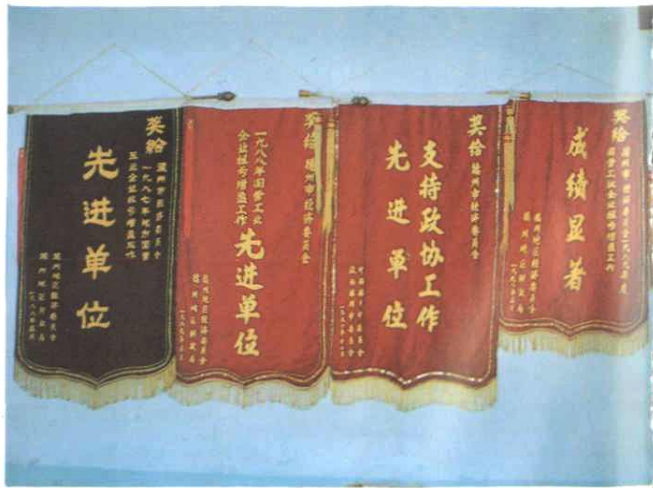 奖给
德州市经济委员会
一九八七年地方国营
工业企业扭亏增盈工作
先进单位
德州地区经济委员会
德州地区财政局
奖给 德州市经济委员会
一九八八年国营工业
企业扭亏增盈工作
先进单位
德州地区经济委员会
德州地区财政局
奖给 德州市经济委员会
支持政协工作
先进单位
奖给
成绩显著
德州地区经济委员会
德州地区财政局